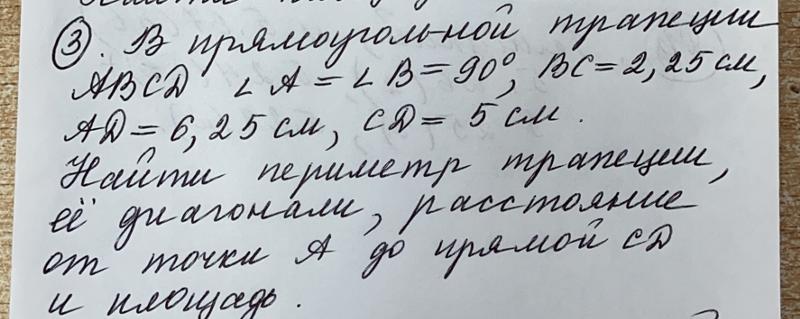 ③. В прямоугольной трапеции
ABCD ∠A = ∠B = 90°, BC = 2,25 см,
AD = 6,25 см, CD = 5 см.
Найти периметр трапеции,
её диагонали, расстояние
от точки А до прямой CD
и площадь.